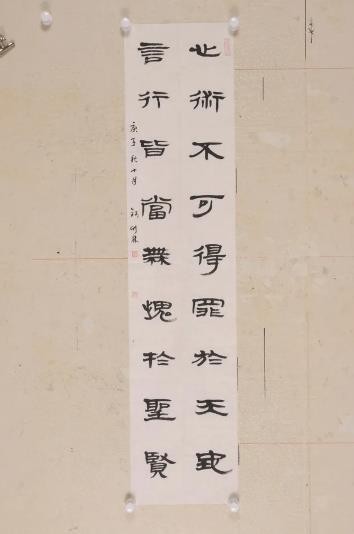 心術不可得罪於天地
言行皆當無愧於聖賢
庚子秋十月